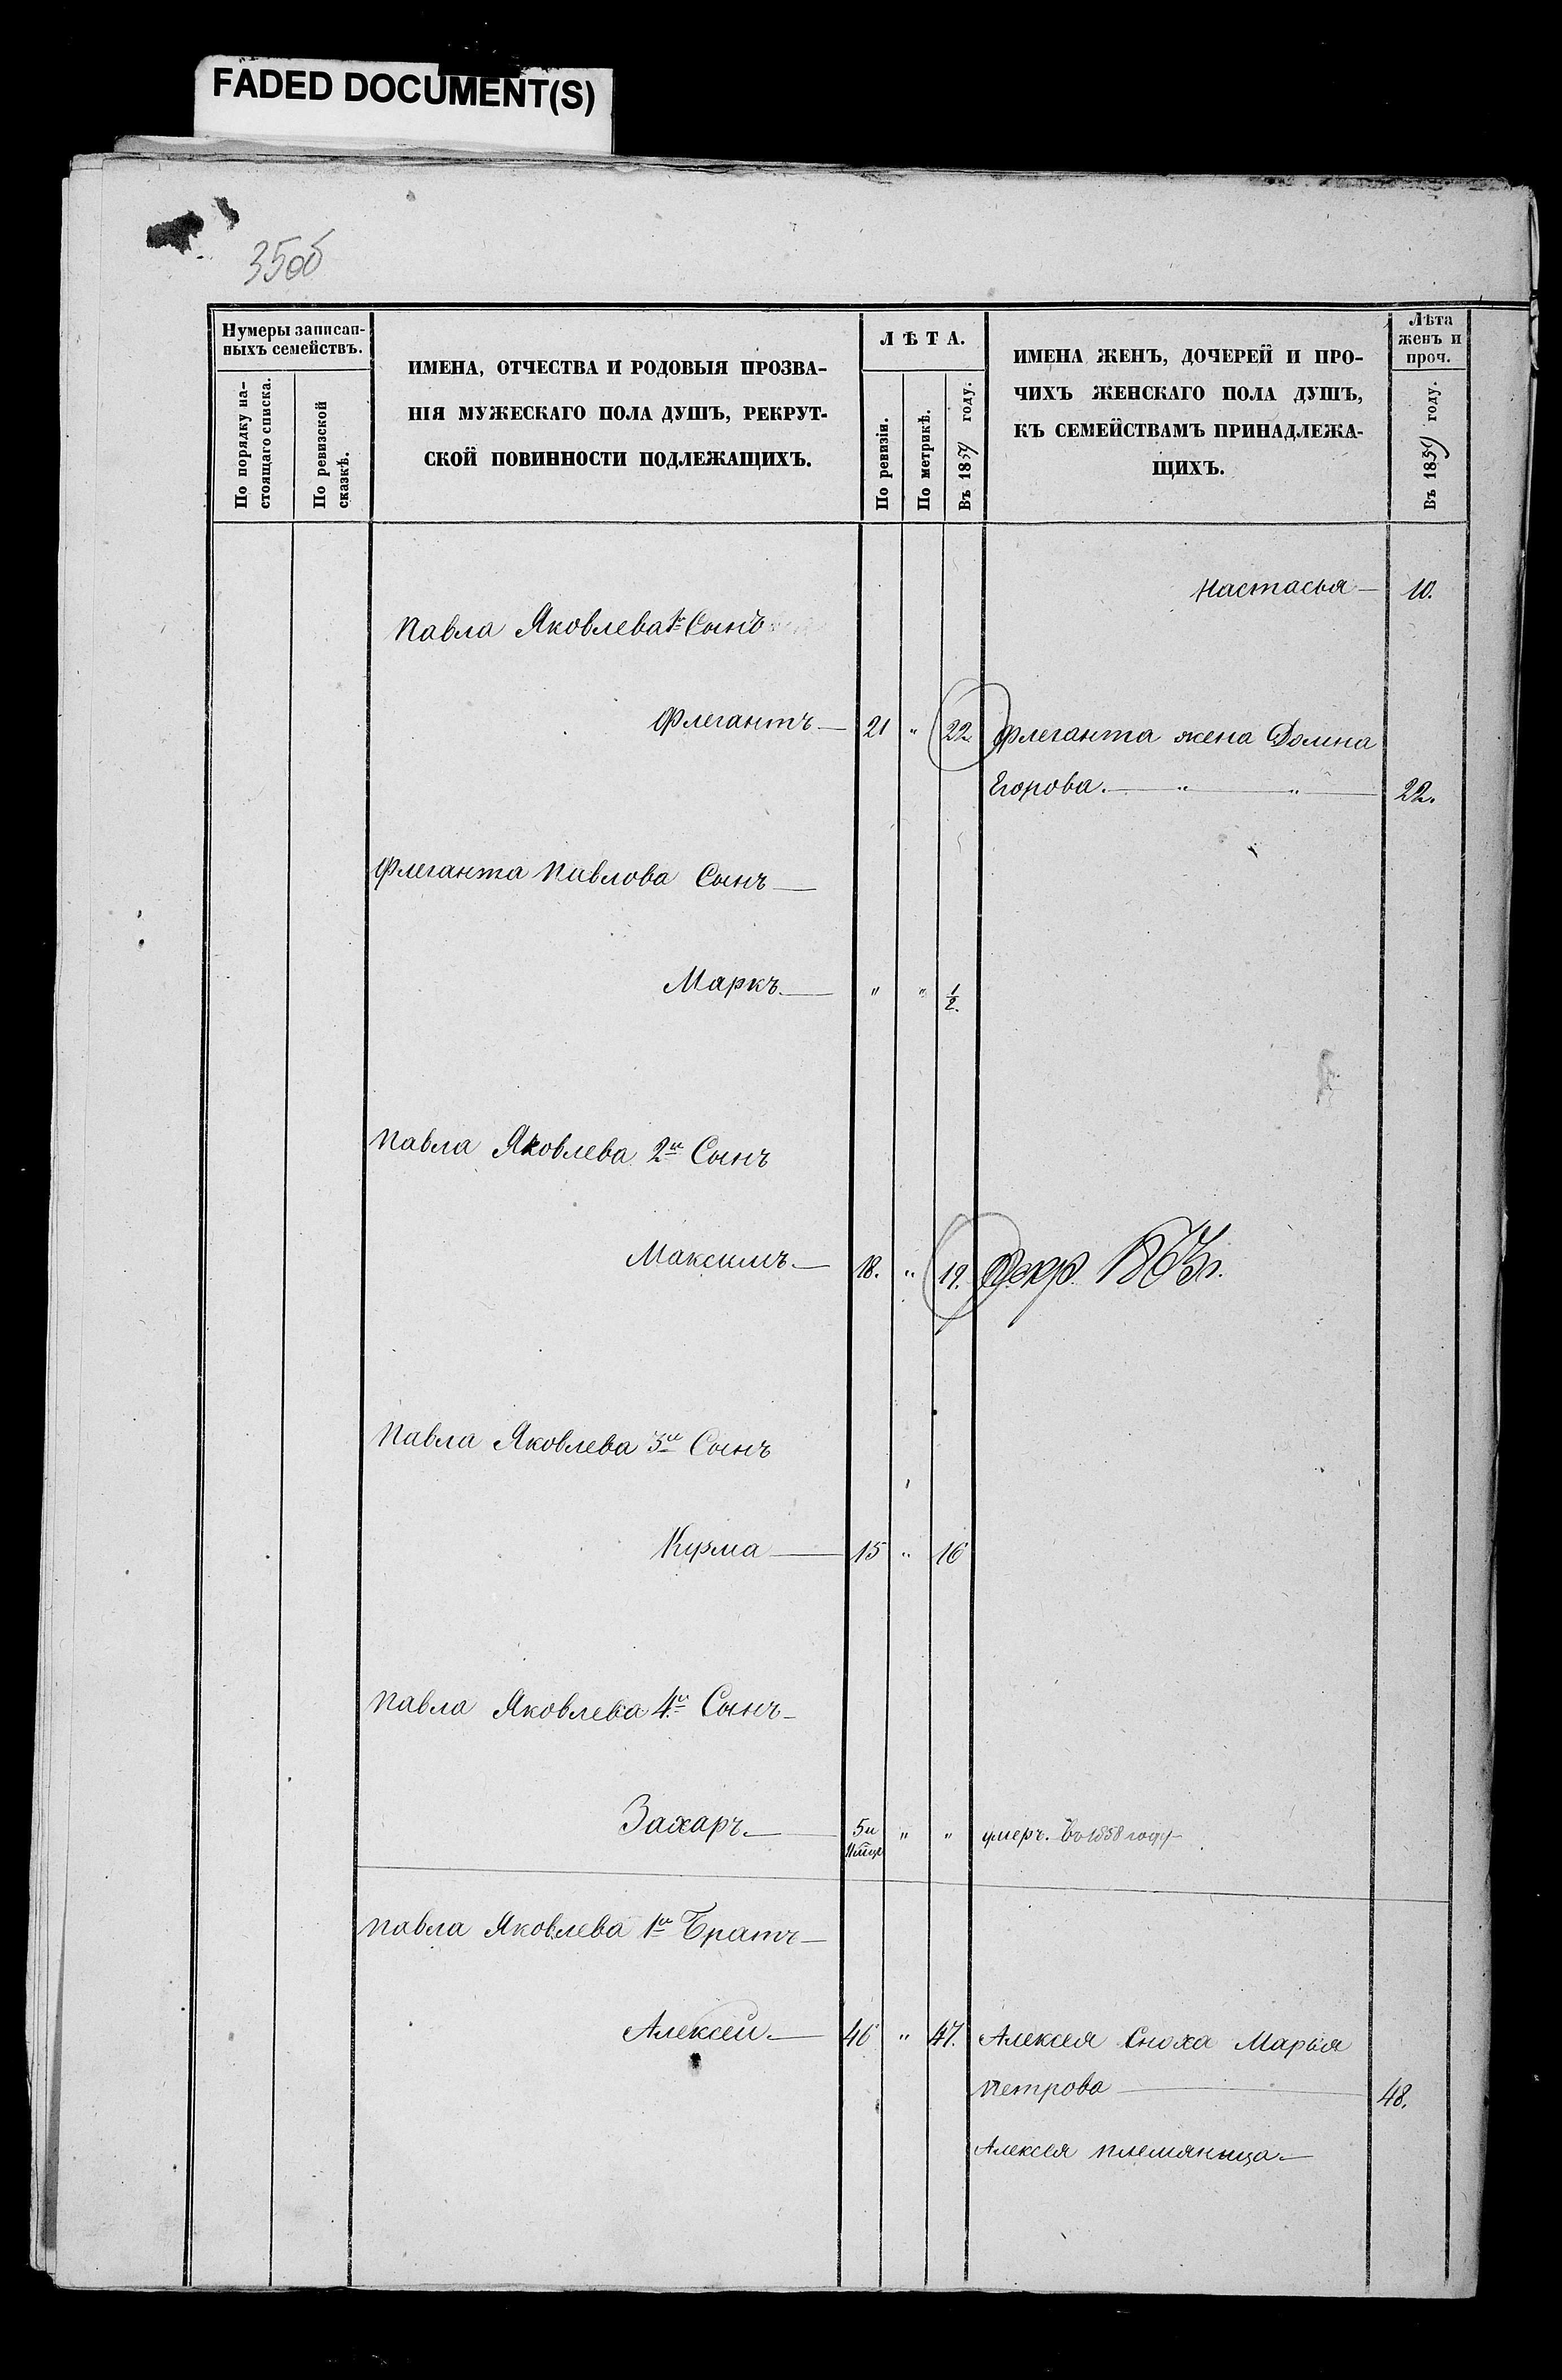 FADED DOCUMENT(S)
35об
Нумеры записан-
ныхъ семействъ.
По порядку на-
стоящаго списка.
По ревизской
сказкѣ.
ИМЕНА, ОТЧЕСТВА И РОДОВЫЯ ПРОЗВА-
НІЯ МУЖЕСКАГО ПОЛА ДУШЪ, РЕКРУТ-
СКОЙ ПОВИННОСТИ ПОДЛЕЖАЩИХЪ.
ЛѢТА.
По ревизіи.
По метрикѣ.
Въ 1859 году.
ИМЕНА ЖЕНЪ, ДОЧЕРЕЙ И ПРО-
ЧИХЪ ЖЕНСКАГО ПОЛА ДУШЪ,
КЪ СЕМЕЙСТВАМЪ ПРИНАДЛЕЖА-
ЩИХЪ.
Лѣта
женъ и
проч.
Въ 1859 году.
Настасья — 10.
Павла Яковлева 1й Сынъ
Флегантъ — 21 " 22 Флеганта жена Домна
Егорова. — " — " — 22.
Флеганта Павлова Сынъ —
Маркъ. — " " 1/2.
Павла Яковлева 2й Сынъ
Максимъ. — 18. " 19. 1863г.
Павла Яковлева 3й Сынъ
Кузма — 15 " 16
Павла Яковлева 4й Сынъ —
Захаръ. — 5и " " умеръ. въ 1858 году
Павла Яковлева 1й Братъ —
Алексей. — 46 " 47. Алексея Сноха Марья
Петрова — 48.
Алексея племяница. —